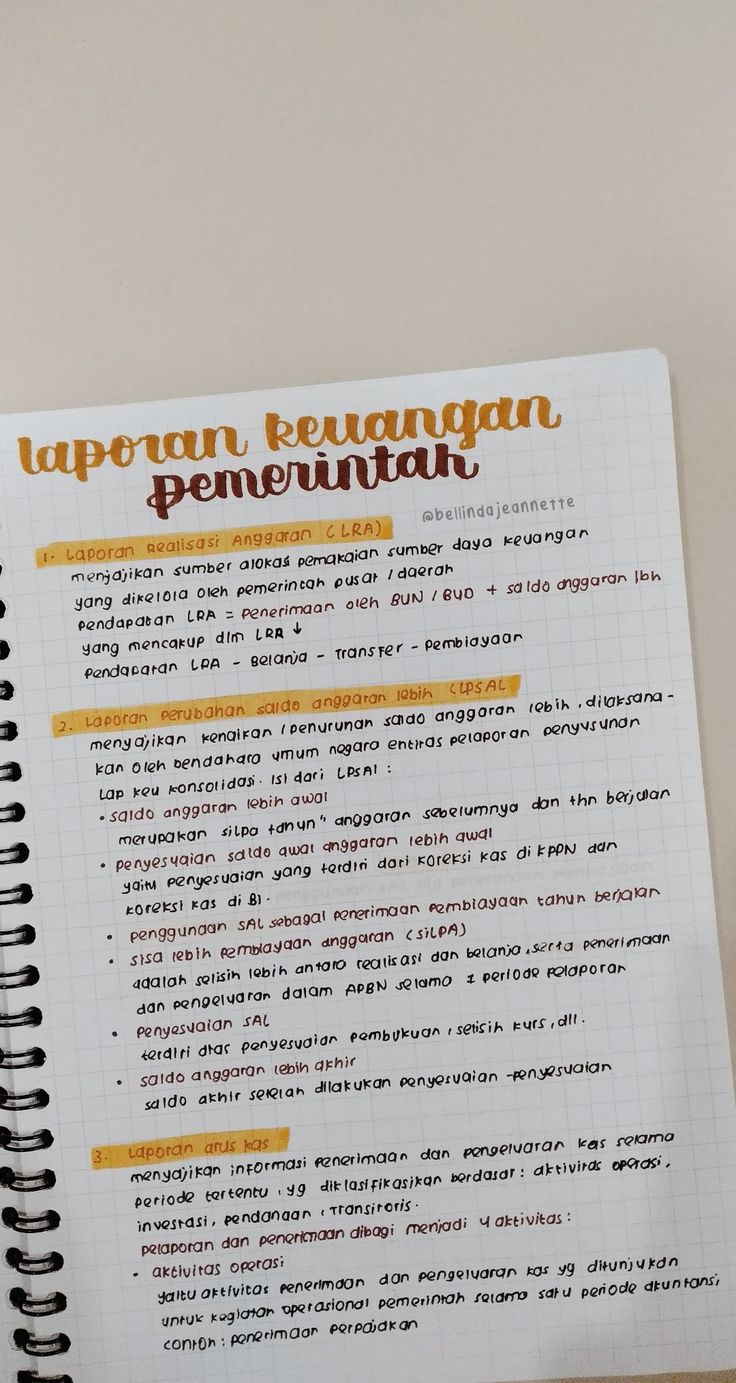 laporan keuangan
pemerintah
@bellindajeannette
1. Laporan Realisasi Anggaran (LRA)
menjajikan sumber alokasi pemakaian sumber daya keuangan
yang dikelola oleh pemerintah pusat / daerah
pendapatan LRA = penerimaan oleh BUN / BUD + saldo anggaran lbh
yang mencakup dlm LRA ↓
Pendapatan LRA - Belanja - Transfer - pembiayaan
2. Laporan perubahan saldo anggaran lebih (LPSAL
menyajikan kenaikan / penurunan saldo anggaran lebih, dilaksana-
kan oleh bendahara umum negara entitas pelaporan penyusunan
Lap keu konsolidasi. Isi dari LPSAl :
• saldo anggaran lebih awal
merupakan silpa tahun" anggaran sebelumnya dan thn berjalan
• penyesuaian saldo awal anggaran lebih awal
yaitu penyesuaian yang terdiri dari koreksi kas di KPPN dan
koreksi kas di BI.
• penggunaan SAL sebagai penerimaan pembiayaan tahun berjalan
• sisa lebih pembiayaan anggaran (SiLPA)
adalah selisih lebih antara realisasi dan belanja, serta penerimaan
dan pengeluaran dalam APBN selama 1 periode pelaporan
• penyesuaian SAL
terdiri dtas penyesuaian pembukuan, selisih kurs, dll.
• saldo anggaran lebih akhir
saldo akhir setelah dilakukan penyesuaian -penyesuaian
3. Laporan arus kas
menyajikan informasi penerimaan dan pengeluaran kas selama
periode tertentu, yg diklasifikasikan berdasar: aktivitas operasi,
investasi, pendanaan, transitoris.
pelaporan dan penerimaan dibagi menjadi 4 aktivitas :
• aktivitas operasi
yaitu aktivitas penerimaan dan pengeluaran kas yg ditunjukan
untuk kegiatan operasional pemerintah selama satu periode akuntansi,
contoh : penerimaan perpajakan